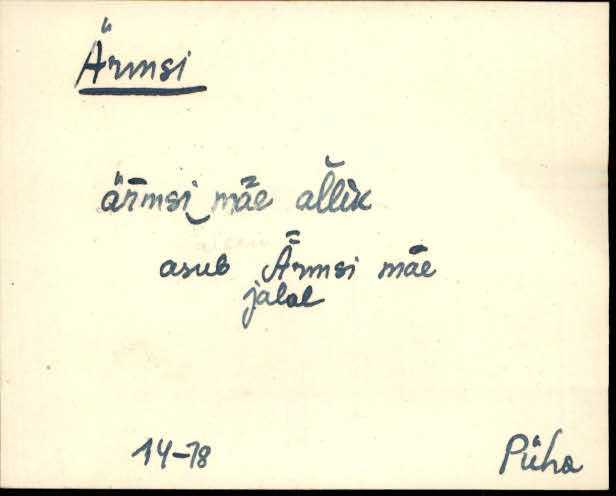 Ärmsi
är̄msi‿mǟe al̆lìk
asub Ǟrmsi mäe
jalal
14-78
Püha